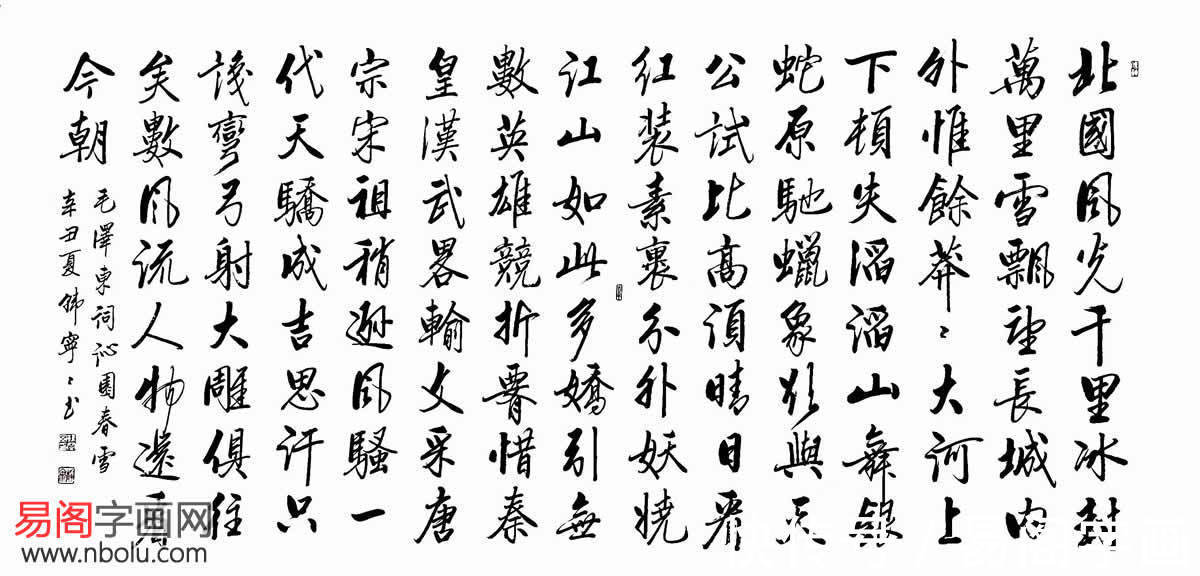 北國風光千里冰封
萬里雪飄望長城内
外惟餘莽〻大河上
下頓失滔滔山舞銀
蛇原馳蠟象欲與天
公試比高須晴日看
红装素裹分外妖娆
江山如此多嬌引無
數英雄競折腰惜秦
皇漢武畧輸文采唐
宗宋祖稍遜風騷一
代天驕成吉思汗只
識彎弓射大雕俱往
矣數風流人物還看
今朝
毛澤東詞沁園春雪
辛丑夏韩寧〻书
易阁字画网
www.nbolu.com